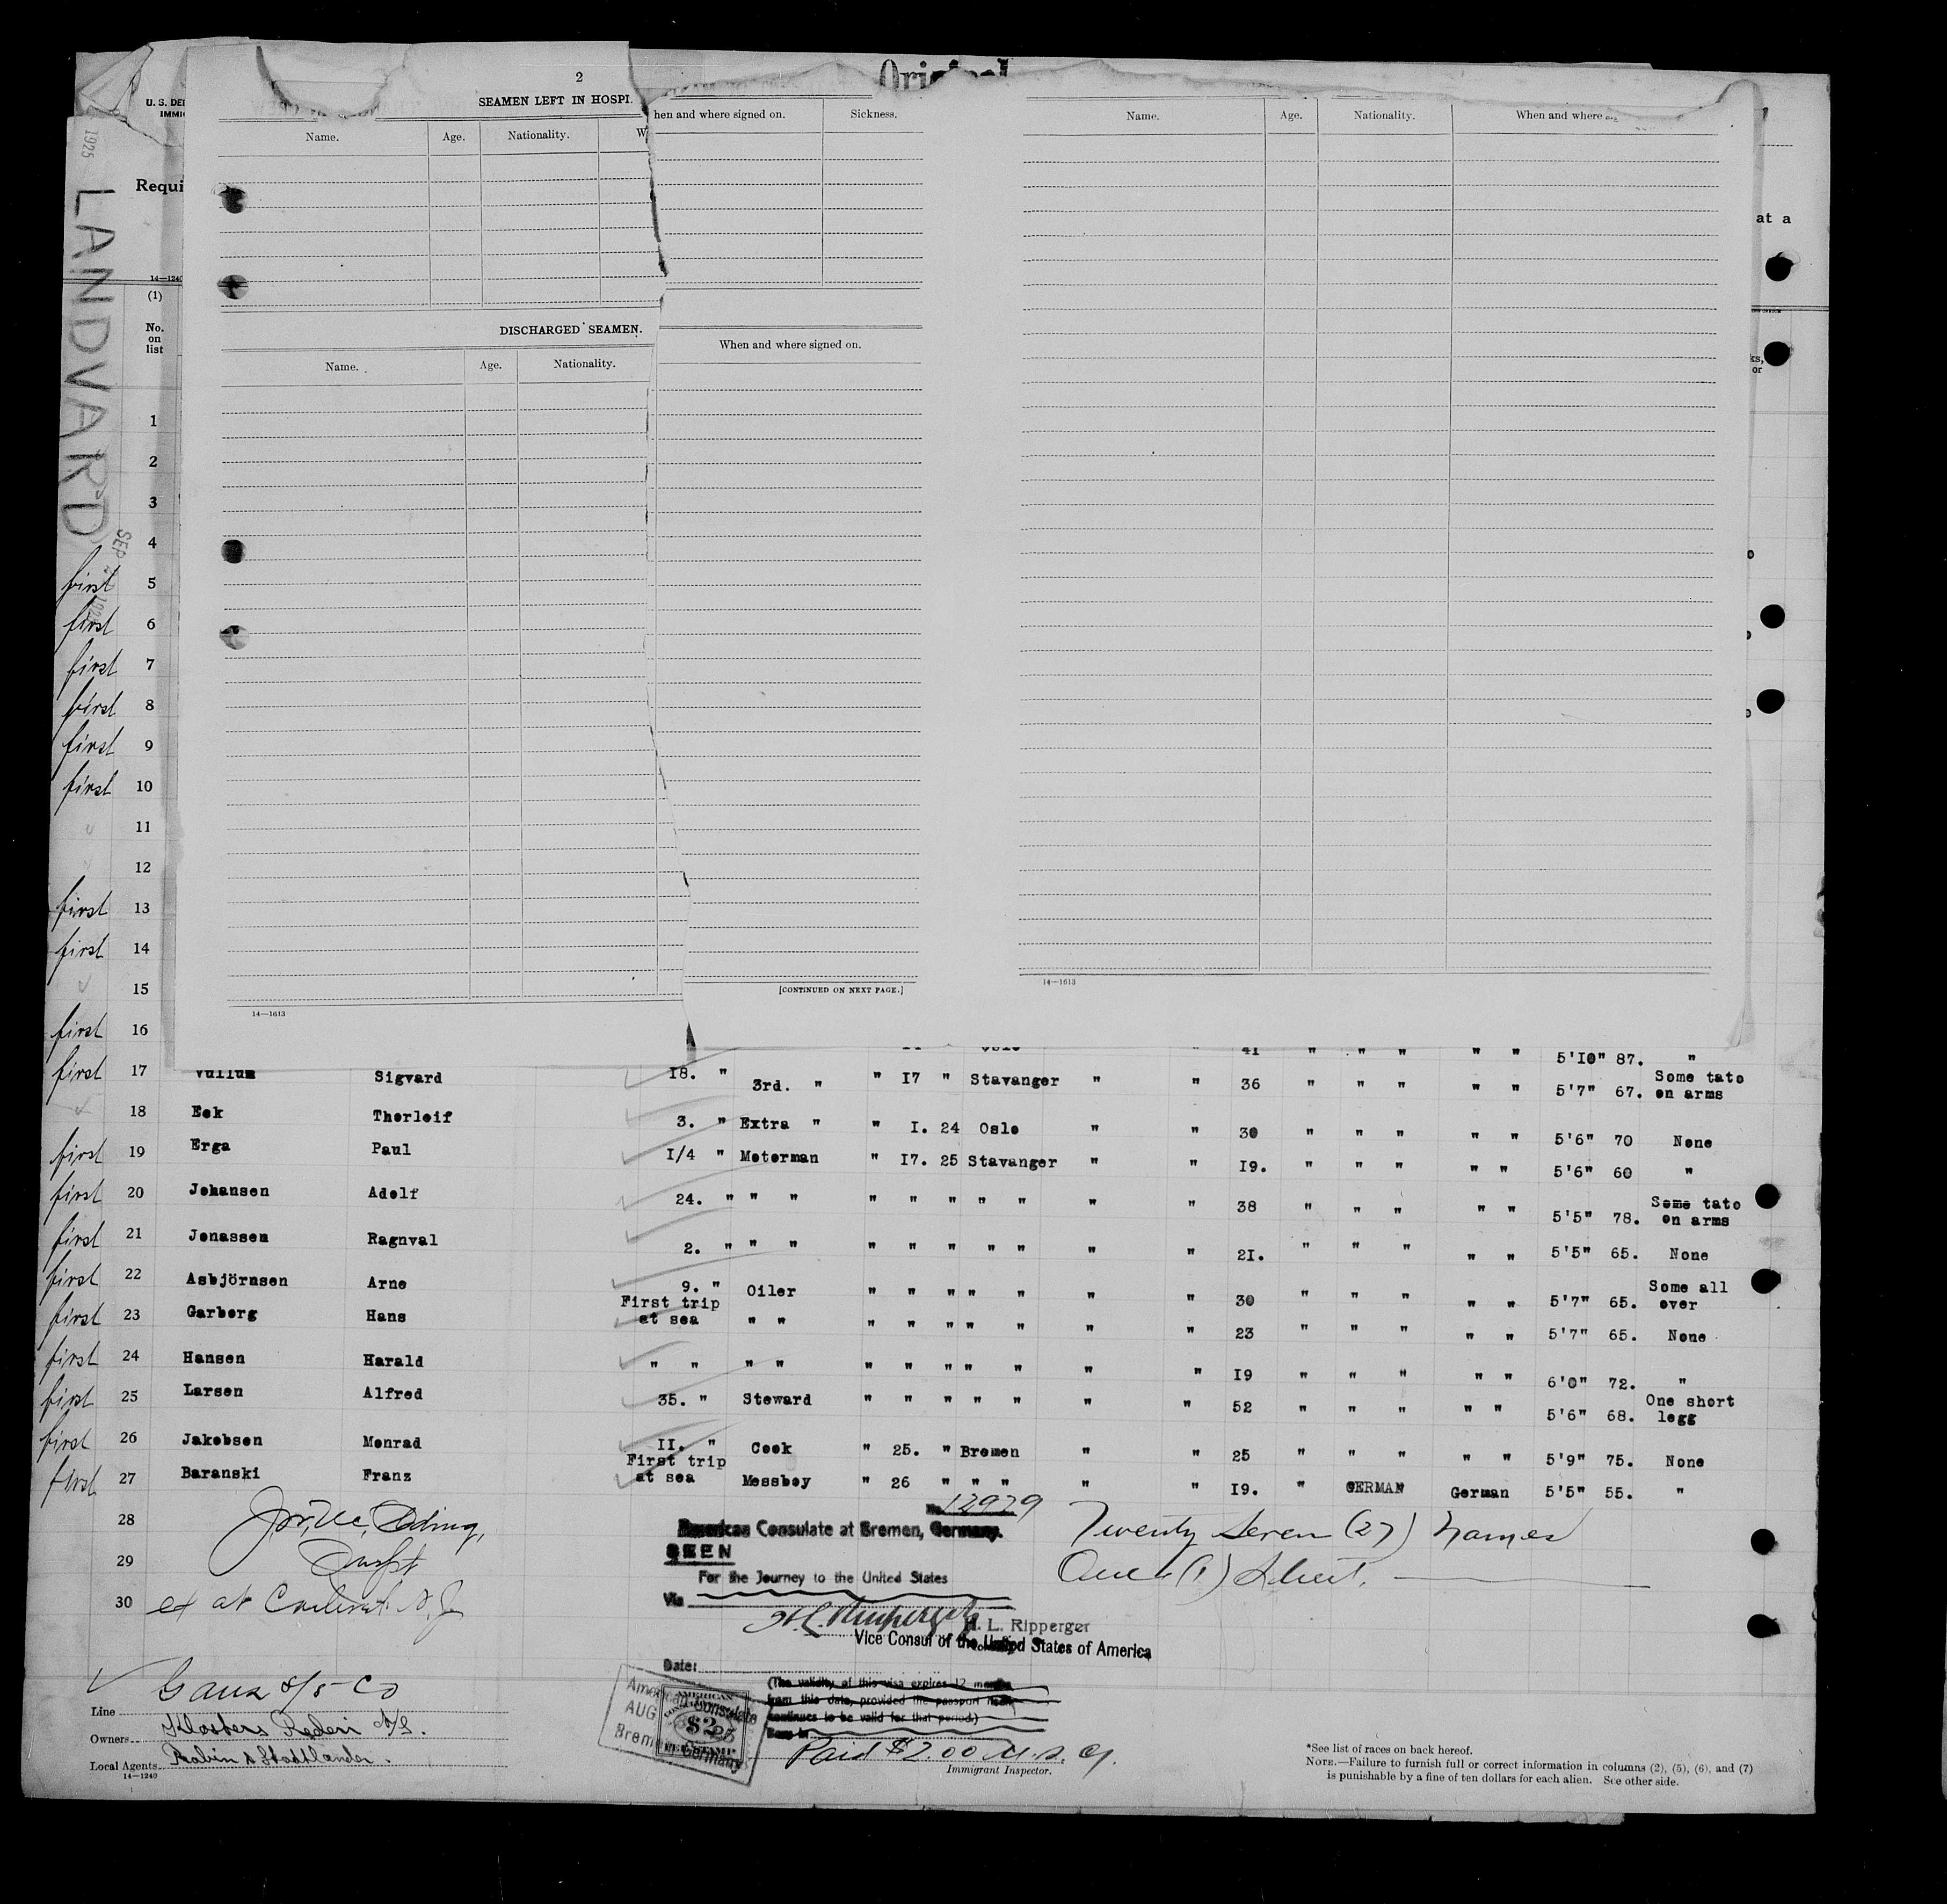 Original
2
U. S. DE
IMMI
SEAMEN LEFT IN HOSPI
Name. Age. Nationality. W
hen and where signed on. Sickness.
Name. Age. Nationality. When and where
1925
LANDVARD
SEP
Requi
at a
14—1240
(1)
No.
on
list
ks,
or
DISCHARGED SEAMEN.
Name. Age. Nationality.
When and where signed on.
1
2
3
4
first 5
first 6
first 7
first 8
first 9
first 10
11
12
first 13
first 14
15
[CONTINUED ON NEXT PAGE.]
14—1613
14—1613
first 16
41 " " " " " 5'10" 87. "
first 17 Vullum Sigvard 18. " 3rd. " " 17 " Stavanger " " 36 " " " " " 5'7" 67. Some tato on arms
18 Eek Thorleif 3. " Extra " " I. 24 Oslo " " 30 " " " " " 5'6" 70 None
first 19 Erga Paul 1/4 " Motorman " 17. 25 Stavanger " " 19. " " " " " 5'6" 60 "
first 20 Johansen Adolf 24. " " " " " " " " " " 38 " " " " " 5'5" 78. Some tato on arms
first 21 Jonassen Ragnval 2. " " " " " " " " " " 21. " " " " " 5'5" 65. None
first 22 Asbjörnsen Arne 9. " Oiler " " " " " " " 30 " " " " " 5'7" 65. Some all over
first 23 Garberg Hans First trip at sea " " " " " " " " " 23 " " " " " 5'7" 65. None
first 24 Hansen Harald " " " " " " " " " " " 19 " " " " " 6'0" 72. "
first 25 Larsen Alfred 35. " Steward " " " " " " " 52 " " " " " 5'6" 68. One short legg
first 26 Jakobsen Monrad 11. " Cook " 25. " Bremen " " 25 " " " " " 5'9" 75. None
first 27 Baranski Franz First trip at sea Messboy " 26 " " " " " 19. " GERMAN German 5'5" 55. "
28
29
30
ex at
No. 12929
American Consulate at Bremen, Germany.
SEEN
For the Journey to the United States
Via
H. L. Ripperger
Vice Consul of the United States of America
Date:
(The validity of this visa expires 12 months
from this date, provided the passport
continues to be valid for that period.)
Twenty Seven (27) names
One (1) Sheet.
American Consulate
AUG 25
Bremen, Germany
AMERICAN
$2
FEE STAMP
Paid $2.00 U.S. Cy.
Immigrant Inspector.
Line Ganz S/S Co
Owners Klosters Rederi A/S.
Local Agents
14—1240
*See list of races on back hereof.
NOTE.—Failure to furnish full or correct information in columns (2), (5), (6), and (7)
is punishable by a fine of ten dollars for each alien. See other side.